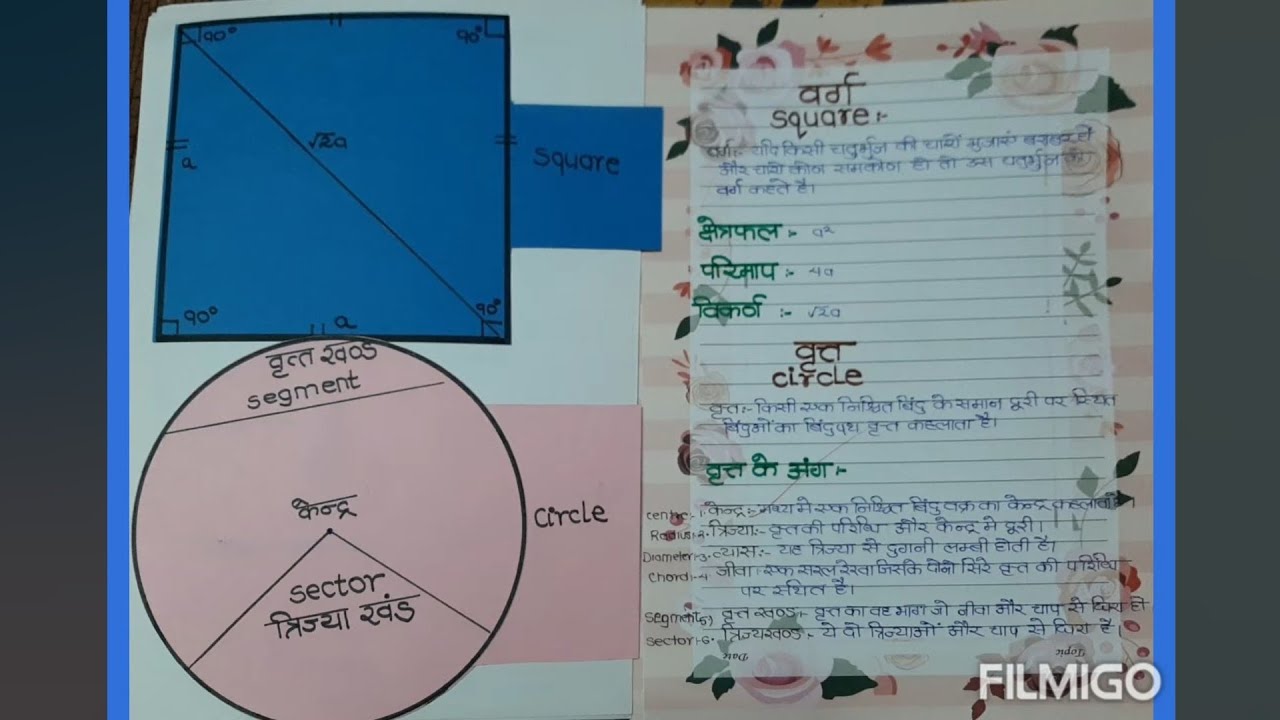 90°
90°
a
√2a
90°
90°
a
square
वृत्त खण्ड
segment
केन्द्र
sector
त्रिज्या खंड
circle
वर्ग
square:-
वर्ग:- यदि किसी चतुर्भुज की चारों भुजाएं बराबर हो
और चारों कोण समकोण हो तो उस चतुर्भुज को
वर्ग कहते है।
क्षेत्रफल :- a²
परिमाप :- 4a
विकर्ण :- √2a
वृत्त
circle
वृत्त:- किसी एक निश्चित बिंदु के समान दूरी पर स्थित
बिंदुओं का बिंदुपथ वृत्त कहलाता है।
वृत्त के अंग:-
centre:-1. केन्द्र:- मध्य मे एक निश्चित बिंदु वक्र का केन्द्र कहलाता है।
Radius:-2. त्रिज्या:- वृत्त की परिधि और केन्द्र मे दूरी।
Diameter:-3. व्यास:- यह त्रिज्या से दुगनी लम्बी होती है।
Chord:-4. जीवा: एक सरल रेखा जिसके दोनो सिरे वृत्त की परिधि
पर स्थित है।
segment:5) वृत्त खण्ड:- वृत्त का वह भाग जो जीवा और चाप से घिरा हो
sector:-6. त्रिज्यखण्ड:- ये दो त्रिज्याओं और चाप से घिरा है।
Date
Topic
FILMIGO